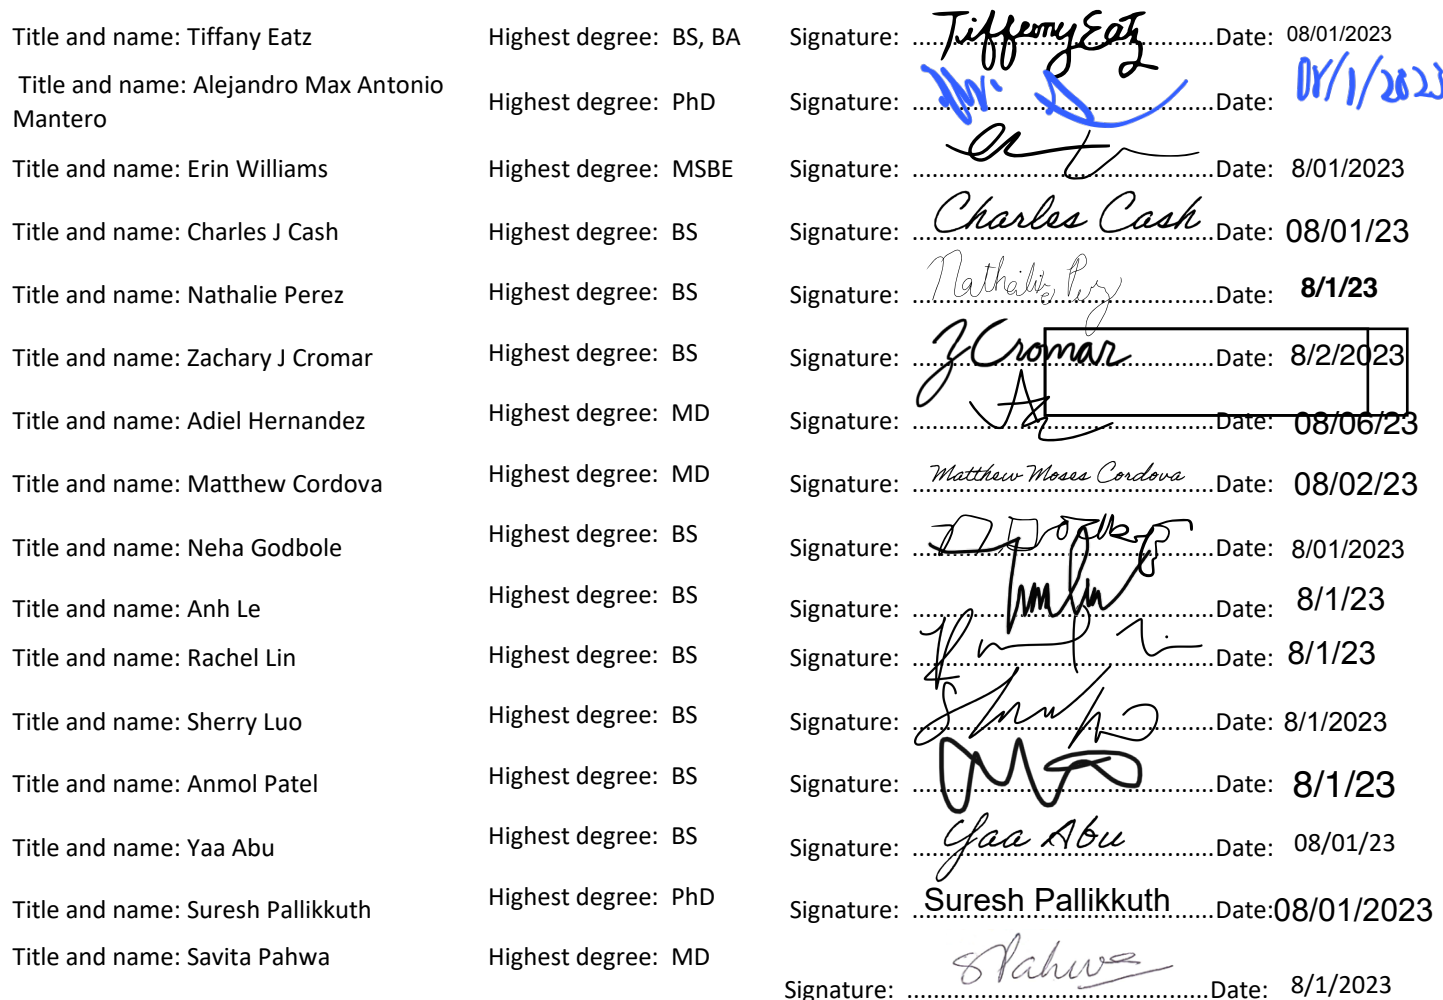 Title and name: Tiffany Eatz Highest degree: BS, BA Signature: Tiffany Eatz Date: 08/01/2023
Title and name: Alejandro Max Antonio
Mantero Highest degree: PhD Signature: Date: 08/1/2023
Title and name: Erin Williams Highest degree: MSBE Signature: Date: 8/01/2023
Title and name: Charles J Cash Highest degree: BS Signature: Charles Cash Date: 08/01/23
Title and name: Nathalie Perez Highest degree: BS Signature: Nathalie Perez Date: 8/1/23
Title and name: Zachary J Cromar Highest degree: BS Signature: Z Cromar Date: 8/2/2023
Title and name: Adiel Hernandez Highest degree: MD Signature: Date: 08/06/23
Title and name: Matthew Cordova Highest degree: MD Signature: Matthew Moses Cordova Date: 08/02/23
Title and name: Neha Godbole Highest degree: BS Signature: Date: 8/01/2023
Title and name: Anh Le Highest degree: BS Signature: Date: 8/1/23
Title and name: Rachel Lin Highest degree: BS Signature: Date: 8/1/23
Title and name: Sherry Luo Highest degree: BS Signature: Date: 8/1/2023
Title and name: Anmol Patel Highest degree: BS Signature: Date: 8/1/23
Title and name: Yaa Abu Highest degree: BS Signature: Yaa Abu Date: 08/01/23
Title and name: Suresh Pallikkuth Highest degree: PhD Signature: Suresh Pallikkuth Date: 08/01/2023
Title and name: Savita Pahwa Highest degree: MD Signature: SPahwa Date: 8/1/2023